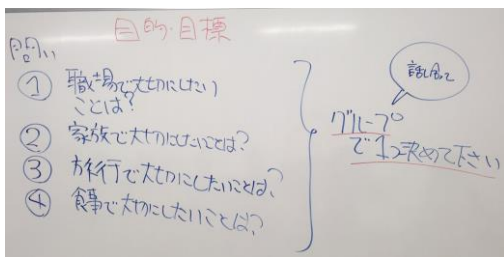 目的・目標
問い
① 職場で大切にしたい
ことは?
② 家族で大切にしたいことは?
③ 旅行で大切にしたいことは?
④ 食事で大切にしたいことは?
話し合って
グループ
で1つ決めて下さい